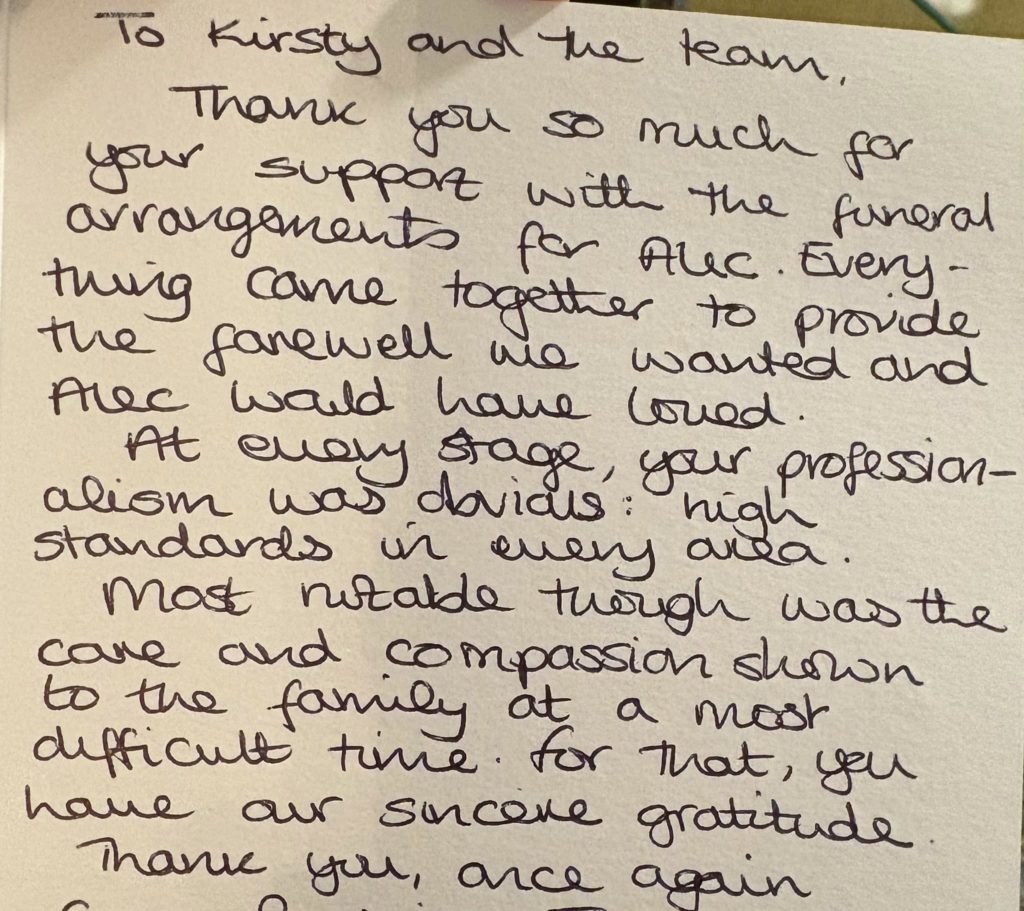 To Kirsty and the team,
Thank you so much for
your support with the funeral
arrangements for Alec. Every-
thing came together to provide
the farewell we wanted and
Alec would have loved.
At every stage, your profession-
alism was obvious: high
standards in every area.
Most notable though was the
care and compassion shown
to the family at a most
difficult time. For that, you
have our sincere gratitude.
Thank you, once again